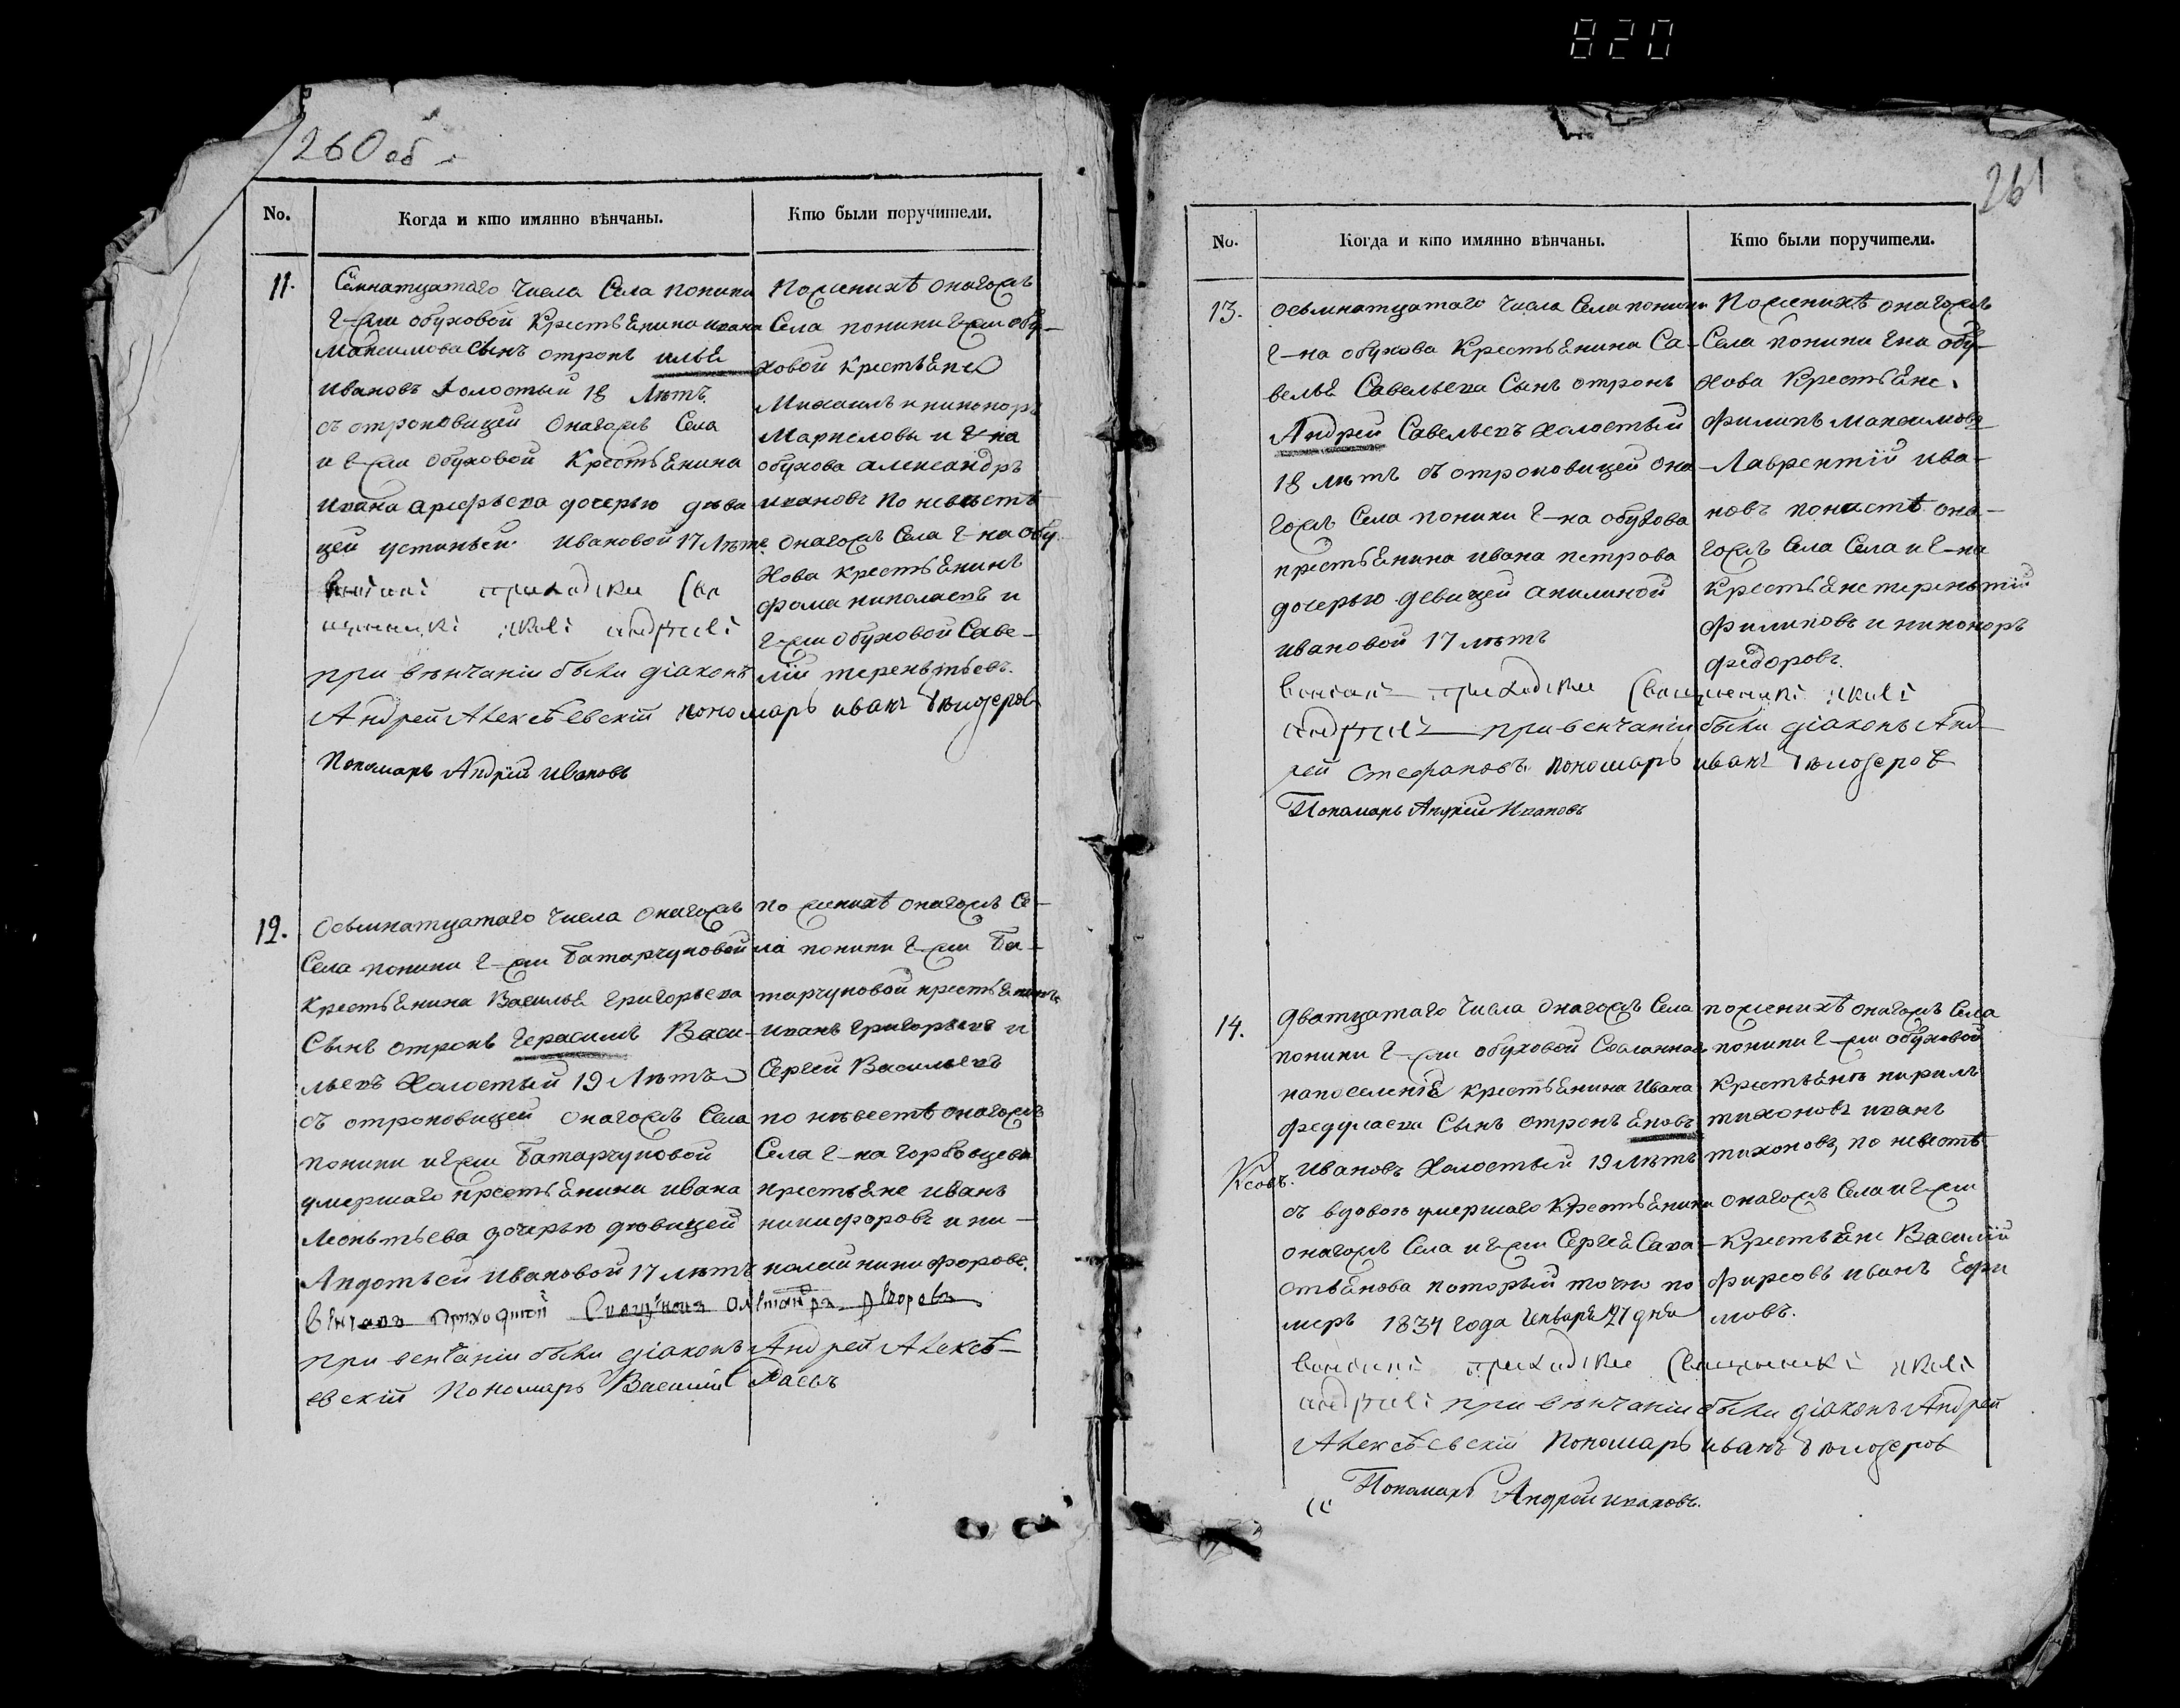 820
260 об
No.
Когда и кто имянно вѣнчаны.
Кто были поручители.
11.
Семнатцатаго числа Села поники
г-жи обуховой крестьянина ивана
Максимова сынъ отрокъ илья
Ивановъ холостый 18 лѣтъ
съ отроковицей онагожъ Села
и г-жи обуховой крестьянина
ивана арефьева дочерью дѣви
цей устиньей ивановой 17 лѣтъ
при вѣнчаніи были діаконъ
Андрей Алексѣевскій пономарь иванъ
Пономарь Андрей Ивановъ
По женихѣ онагожъ
Села поники г-жи обу-
ховой крестьяне
Михаилъ и никоноръ
Маркеловы и г-на
обухова александръ
ивановъ по невѣстѣ
онагожъ Села г-на обу
хова крестьянинъ
фома николаевъ и
г-жи обуховой Саве-
лій терентьевъ.
12.
Осьмнатцатаго числа онагожъ
Села поники г-жи Батарчуковой
крестьянина Василья григорьева
Сынъ отрокъ герасимъ Васи-
льевъ холостый 19 лѣтъ
съ отроковицей онагожъ Села
поники и г-жи Батарчуковой
умершаго крестьянина ивана
Леонтьева дочерью дѣвицей
Авдотьей Ивановой 17 лѣтъ
Вѣнчалъ приходской Священникъ
при венчаніи были діаконъ Андрей Алексѣ-
евскій Пономарь Василій
по женихѣ онагожъ Се-
ла поники г-жи Ба-
тарчуковой крестьянинъ
иванъ григорьевъ и
Сергей Васильевъ
по невѣстѣ онагожъ
Села г-на горбовцева
крестьяне иванъ
никифоровъ и ни-
колай никифоровъ.
261
No.
Когда и кто имянно вѣнчаны.
Кто были поручители.
13.
осьмнатцатаго числа Села поники
г-на обухова крестьянина Са-
велья Савельева Сынъ отрокъ
Андрей Савельевъ холостый
18 лѣтъ съ отроковицей она-
гожъ Села поники г-на обухова
крестьянина ивана петрова
дочерью девицей акилиной
ивановой 17 лѣтъ
при венчаніи были діаконъ Анд
рей Стефановъ Пономарь иванъ
Пономарь Андрей Ивановъ
По женихѣ онагожъ
Села поники г-на обу-
хова крестьяне
филипъ максимовъ
Лаврентій ива-
новъ
гожъ Села Села и г-на
крестьяне терентій
филиповъ и никоноръ
федоровъ.
14.
дватцатаго числа онагожъ Села
поники г-жи обуховой Сосланнаго
напоселенія крестьянина Ивана
Сынъ отрокъ яковъ
Ивановъ холостый 19 лѣтъ
съ вдовою умершаго крестьянина
онагожъ Села и г-жи Сергея Сава-
стьянова который точно по
меръ 1834 года Генваря 27 дня
при вѣнчаніи были діаконъ Андрей
Алексѣевскій Пономарь иванъ
Пономарь Андрей ивановъ.
по женихѣ онагожъ Села
поники г-жи обуховой
крестьяне кирилъ
тихоновъ иванъ
тихоновъ, по невестѣ
онагожъ Села и г-жи
крестьяне Василій
фирсовъ иванъ Ефи
мовъ.